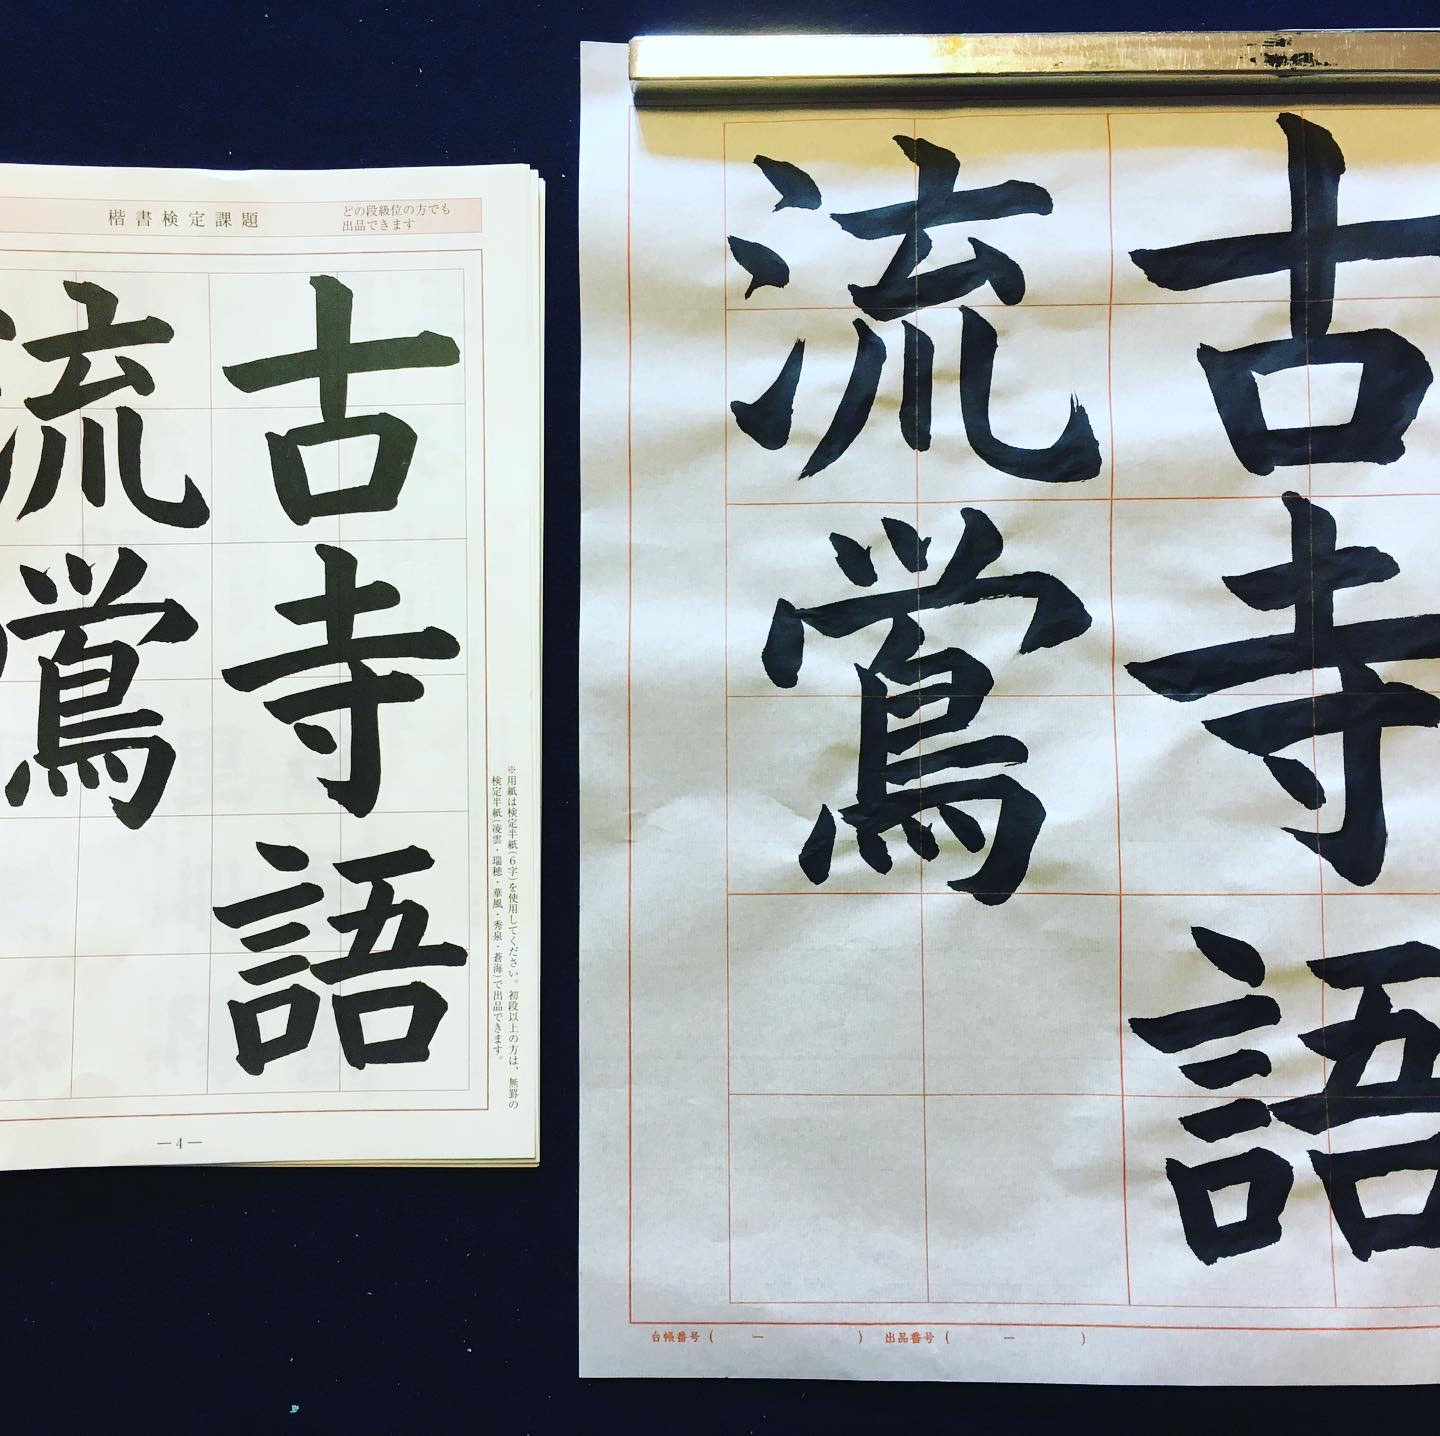 楷書検定課題
どの段級位の方でも
出品できます
古寺語
流鶯
※用紙は検定半紙(6字)を使用してください。初段以上の方は、無罫の
検定半紙(凌雲・瑞穂・華風・秀泉・蒼海)で出品できます。
—4—
古寺語
流鶯
台帳番号( ー ) 出品番号( ー )